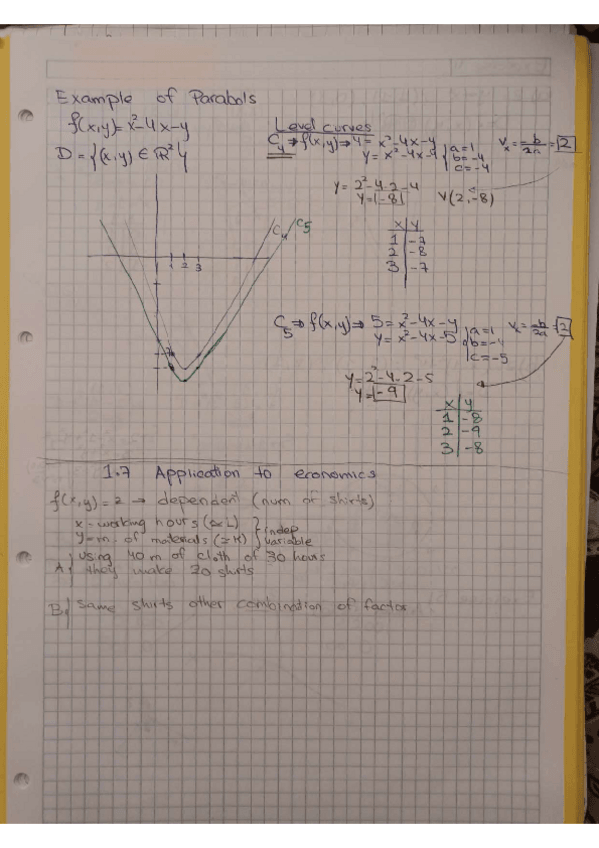 Example of Parabols
f(x,y)=x²-4x-y
D = {(x,y) ∈ ℝ²}
Level curves
C₄ → f(x,y) → 4 = x²-4x-y
y = x²-4x-4
a=1
b=-4
c=-4
Vx = -b/2a = 2
y = 2²-4·2-4
y = -8
V(2,-8)
x y
1 -7
2 -8
3 -7
C₄ C5
1 2 3
C₅ → f(x,y) → 5 = x²-4x-y
y = x²-4x-5
a=1
b=-4
c=-5
Vx = -b/2a = 2
y = 2²-4·2-5
y = -9
x y
1 -8
2 -9
3 -8
1.7 Application to economics
f(x,y) = 2 → dependent (num of shirts)
x - working hours (≈L)
y = m. of materials (≈K)
indep
variable
A) using 40 m of cloth of 30 hours
they make 20 shirts
B) same shirts other combination of factor